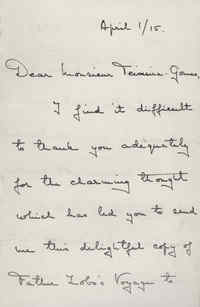 April 1/15.
Dear Monsieur Teixeira-Gomes,
I find it difficult
to thank you adequately
for the charming thought
which has led you to send
me this delightful copy of
Father Lobo's Voyage to